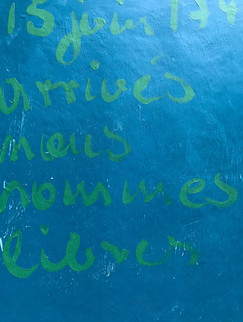 15 juin 174
arrivés
nous
sommes
libres